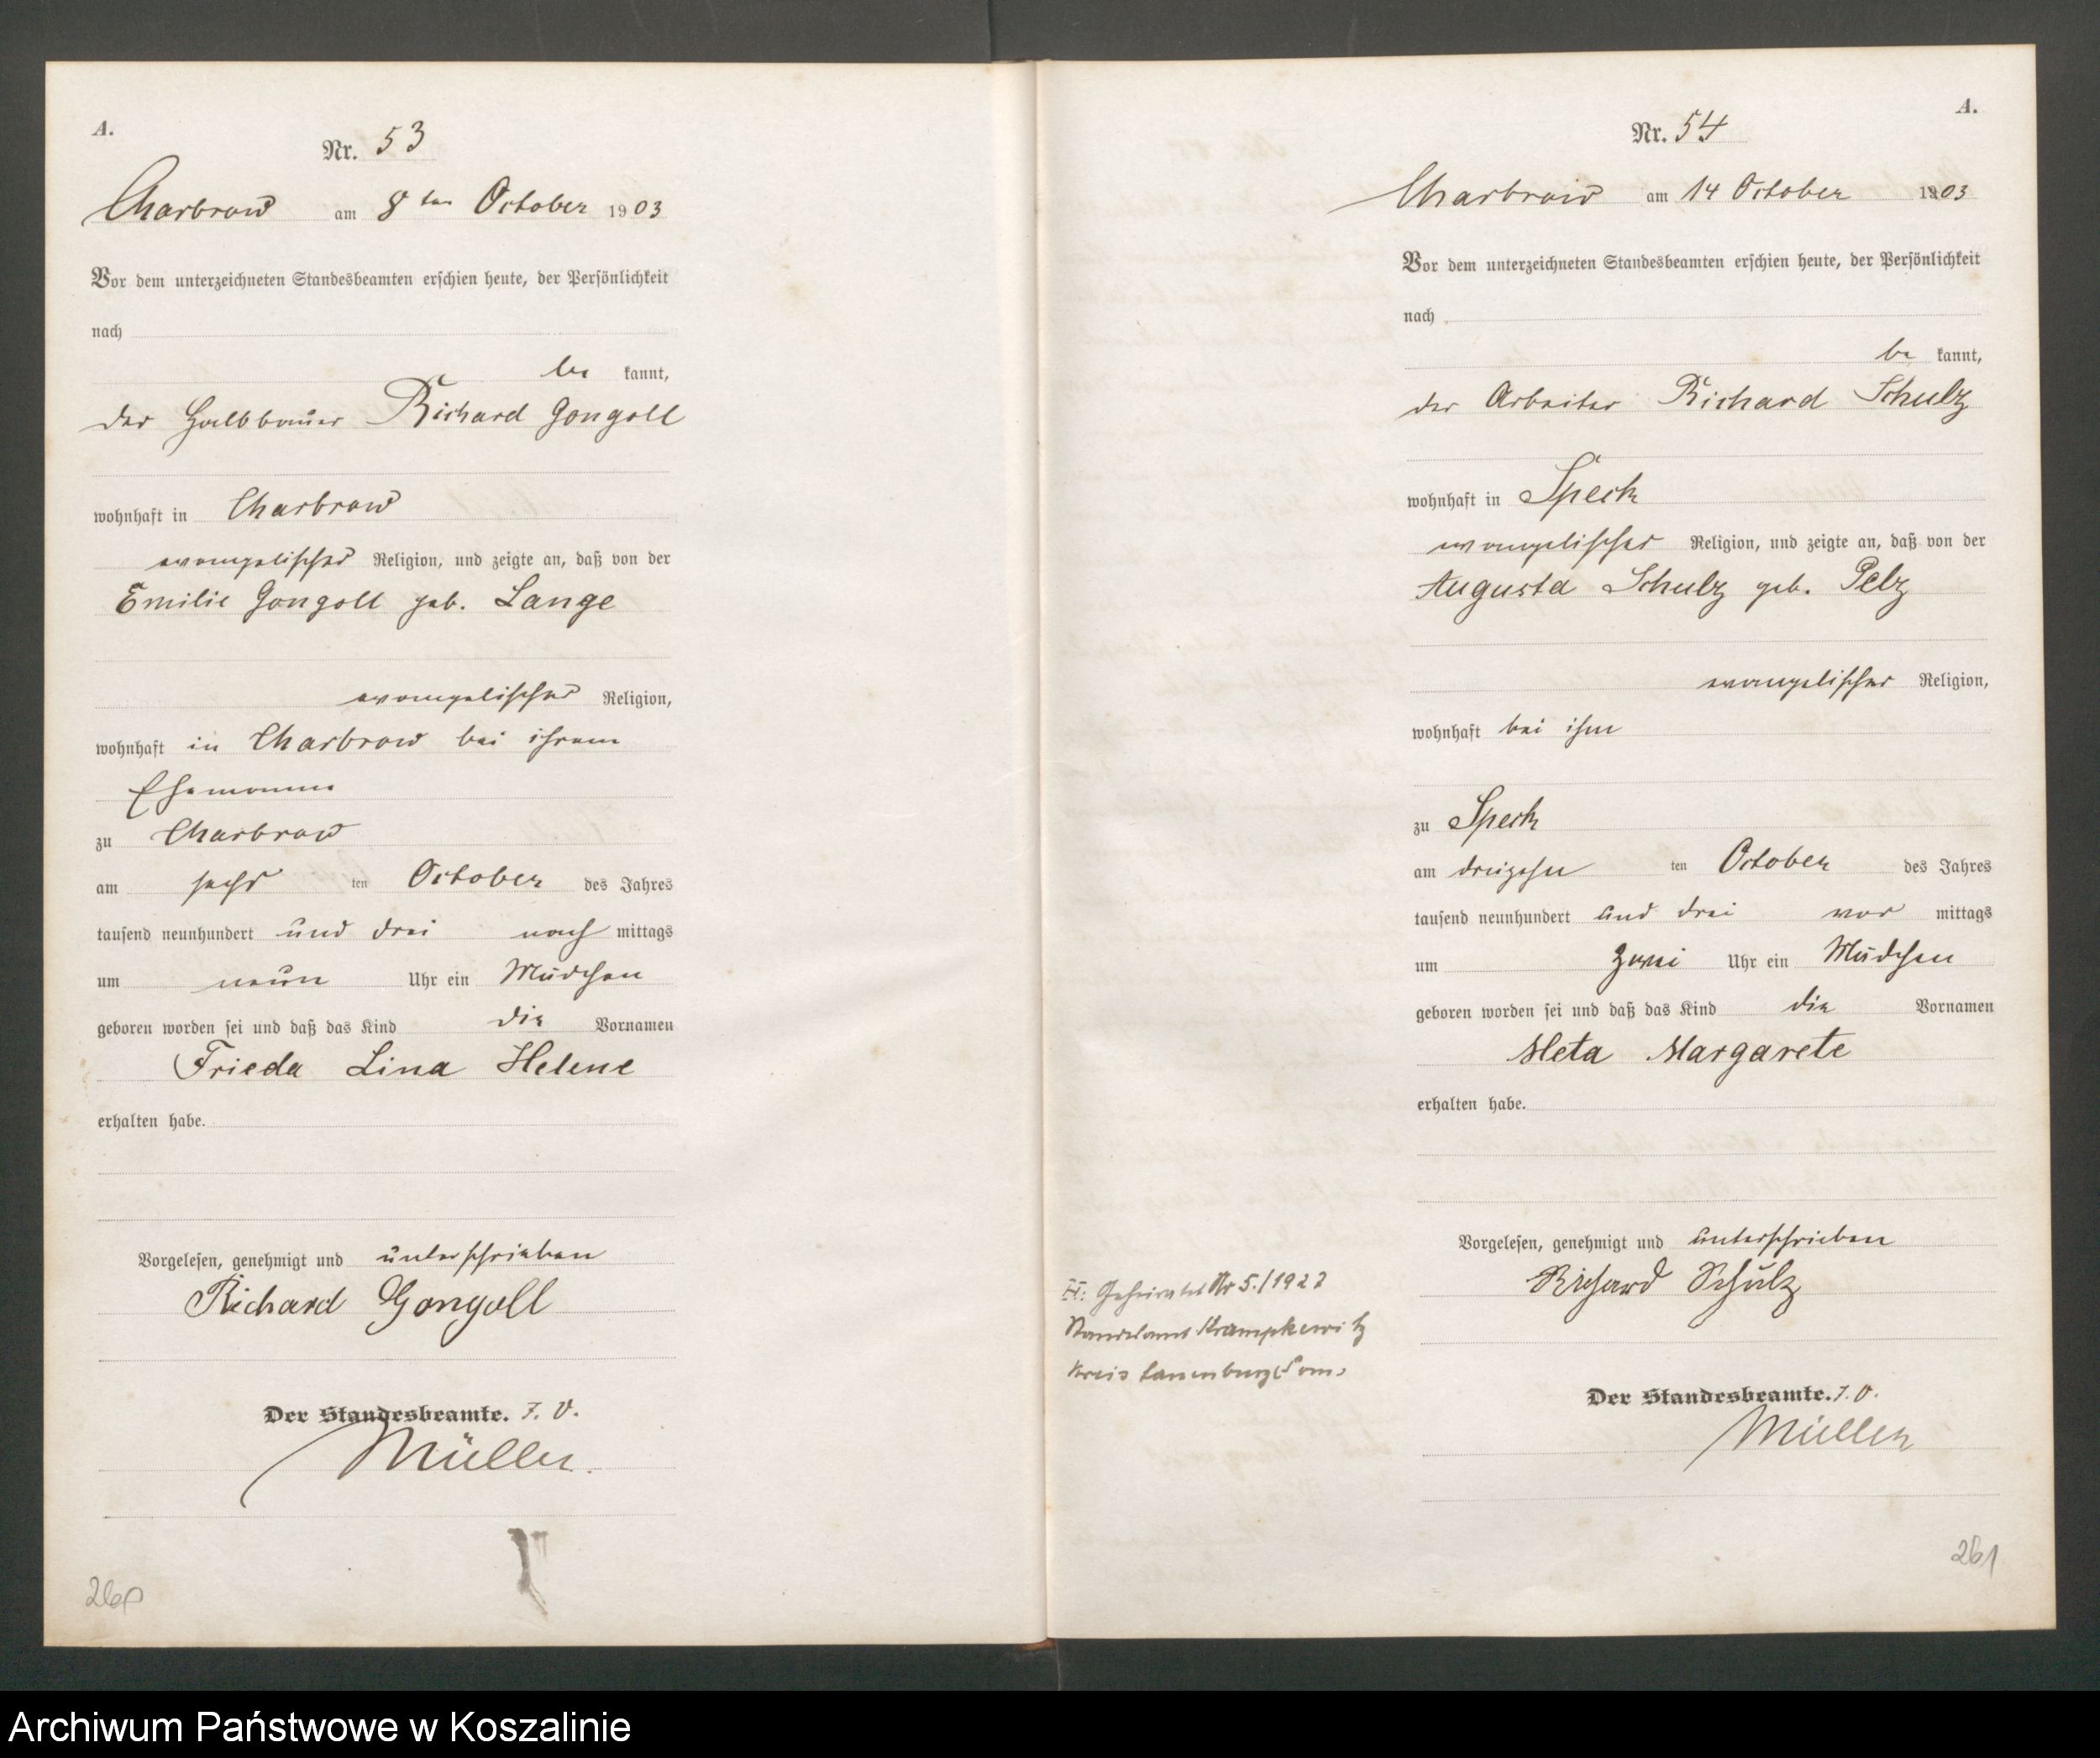 A.
Nr. 53
Charbrow am 8ten October 1903
Vor dem unterzeichneten Standesbeamten erschien heute, der Persönlichkeit
nach
be kannt,
der Halbbauer Richard Gongoll
wohnhaft in Charbrow
evangelischer Religion, und zeigte an, daß von der
Emilie Gongoll geb. Lange
evangelischer Religion,
wohnhaft in Charbrow bei ihrem
Ehemanne
zu Charbrow
am sechs ten October des Jahres
tausend neunhundert und drei nach mittags
um neun Uhr ein Mädchen
geboren worden sei und daß das Kind die Vornamen
Frieda Lina Helene
erhalten habe.
Vorgelesen, genehmigt und unterschrieben
Richard Gongoll
Der Standesbeamte. J. V.
Müller.
260
A.
Nr. 54
Charbrow am 14 October 1903
Vor dem unterzeichneten Standesbeamten erschien heute, der Persönlichkeit
nach
be kannt,
der Arbeiter Richard Schulz
wohnhaft in Speck
evangelischer Religion, und zeigte an, daß von der
Augusta Schulz geb. Pelz
evangelischer Religion,
wohnhaft bei ihm
zu Speck
am dreizehn ten October des Jahres
tausend neunhundert und drei vor mittags
um zwei Uhr ein Mädchen
geboren worden sei und daß das Kind die Vornamen
Meta Margarete
erhalten habe.
Vorgelesen, genehmigt und unterschrieben
Richard Schulz
H: Geheiratet Nr 5./1927
Standesamt Krampkewitz
Kreis Lauenburg Pom.
Der Standesbeamte. J. V.
Müller
261
Archiwum Państwowe w Koszalinie